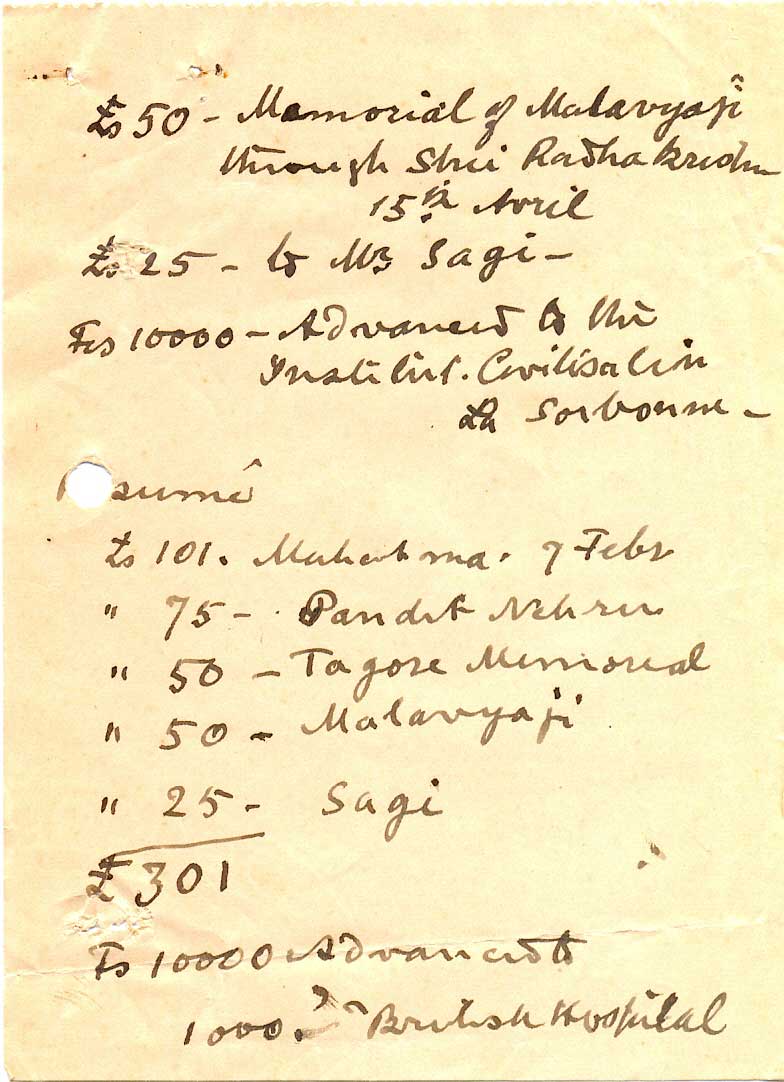 £s 50 - Memorial of Malavyaji
through Shri Radhakrishn
15th April
£s 25 - to Mr Sagi -
Fcs 10000 - Advanced to the
Institut. Civilisation
La Sorbonne -
sumé
£s 101. Mahatma. 7 Febr
" 75 - Pandit Nehru
" 50 - Tagore Memorial
" 50 - Malavyaji
" 25 - Sagi
£ 301
Fs 10000 Advanced to
1000. " British Hospital